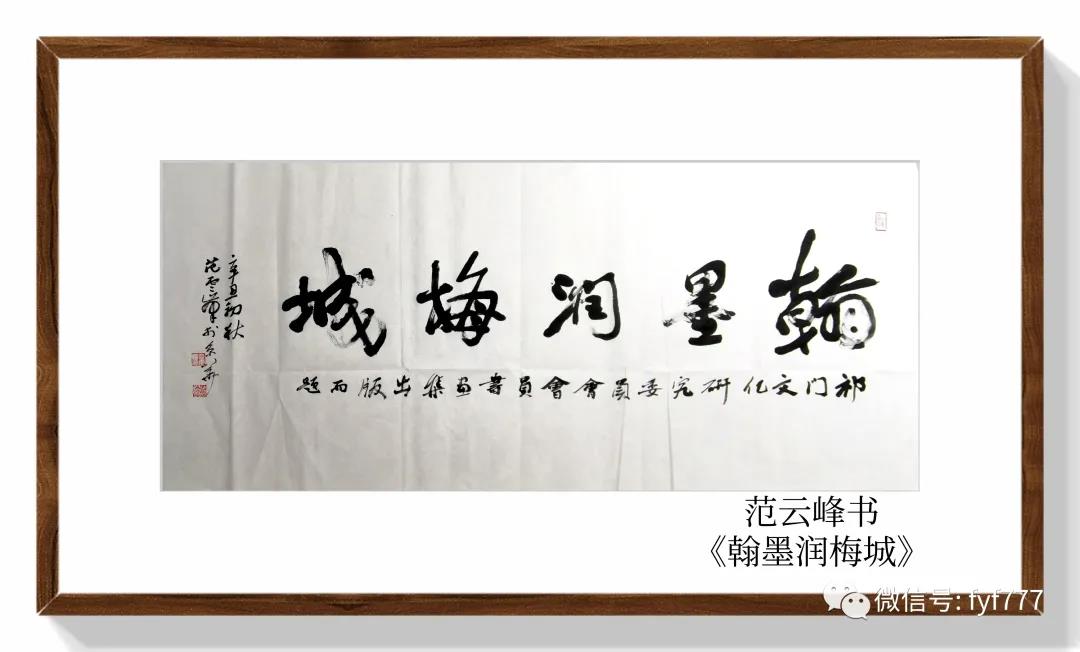 翰墨润梅城
祁门文化研究委員會會員書画集出版而题
辛丑初秋
范雲峰於京
范云峰书
《翰墨润梅城》
微信号: fyf777